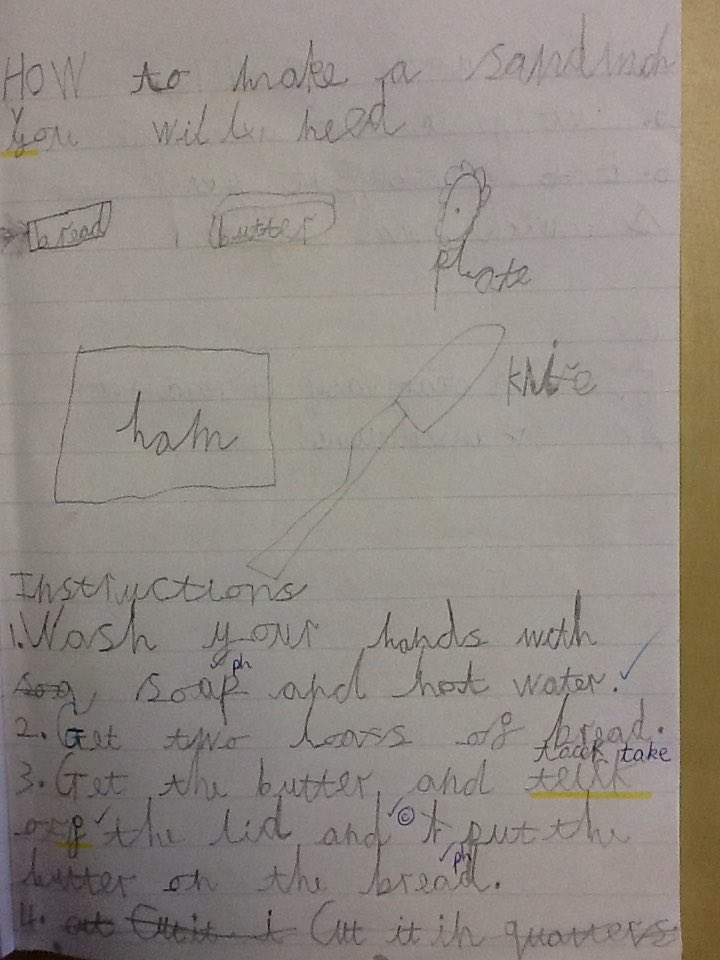 HOW to make a sandwich
you will need
bread butter
plate
knife
ham
Instructions
1. Wash your hands with
ph
soa soap and hot water. ✓
2. Get two loafs of bread.
tacek take
3. Get the butter and teck
off the lid and © I put the
ph
butter on the bread.
4. cut Cut it i Cut it in quarters